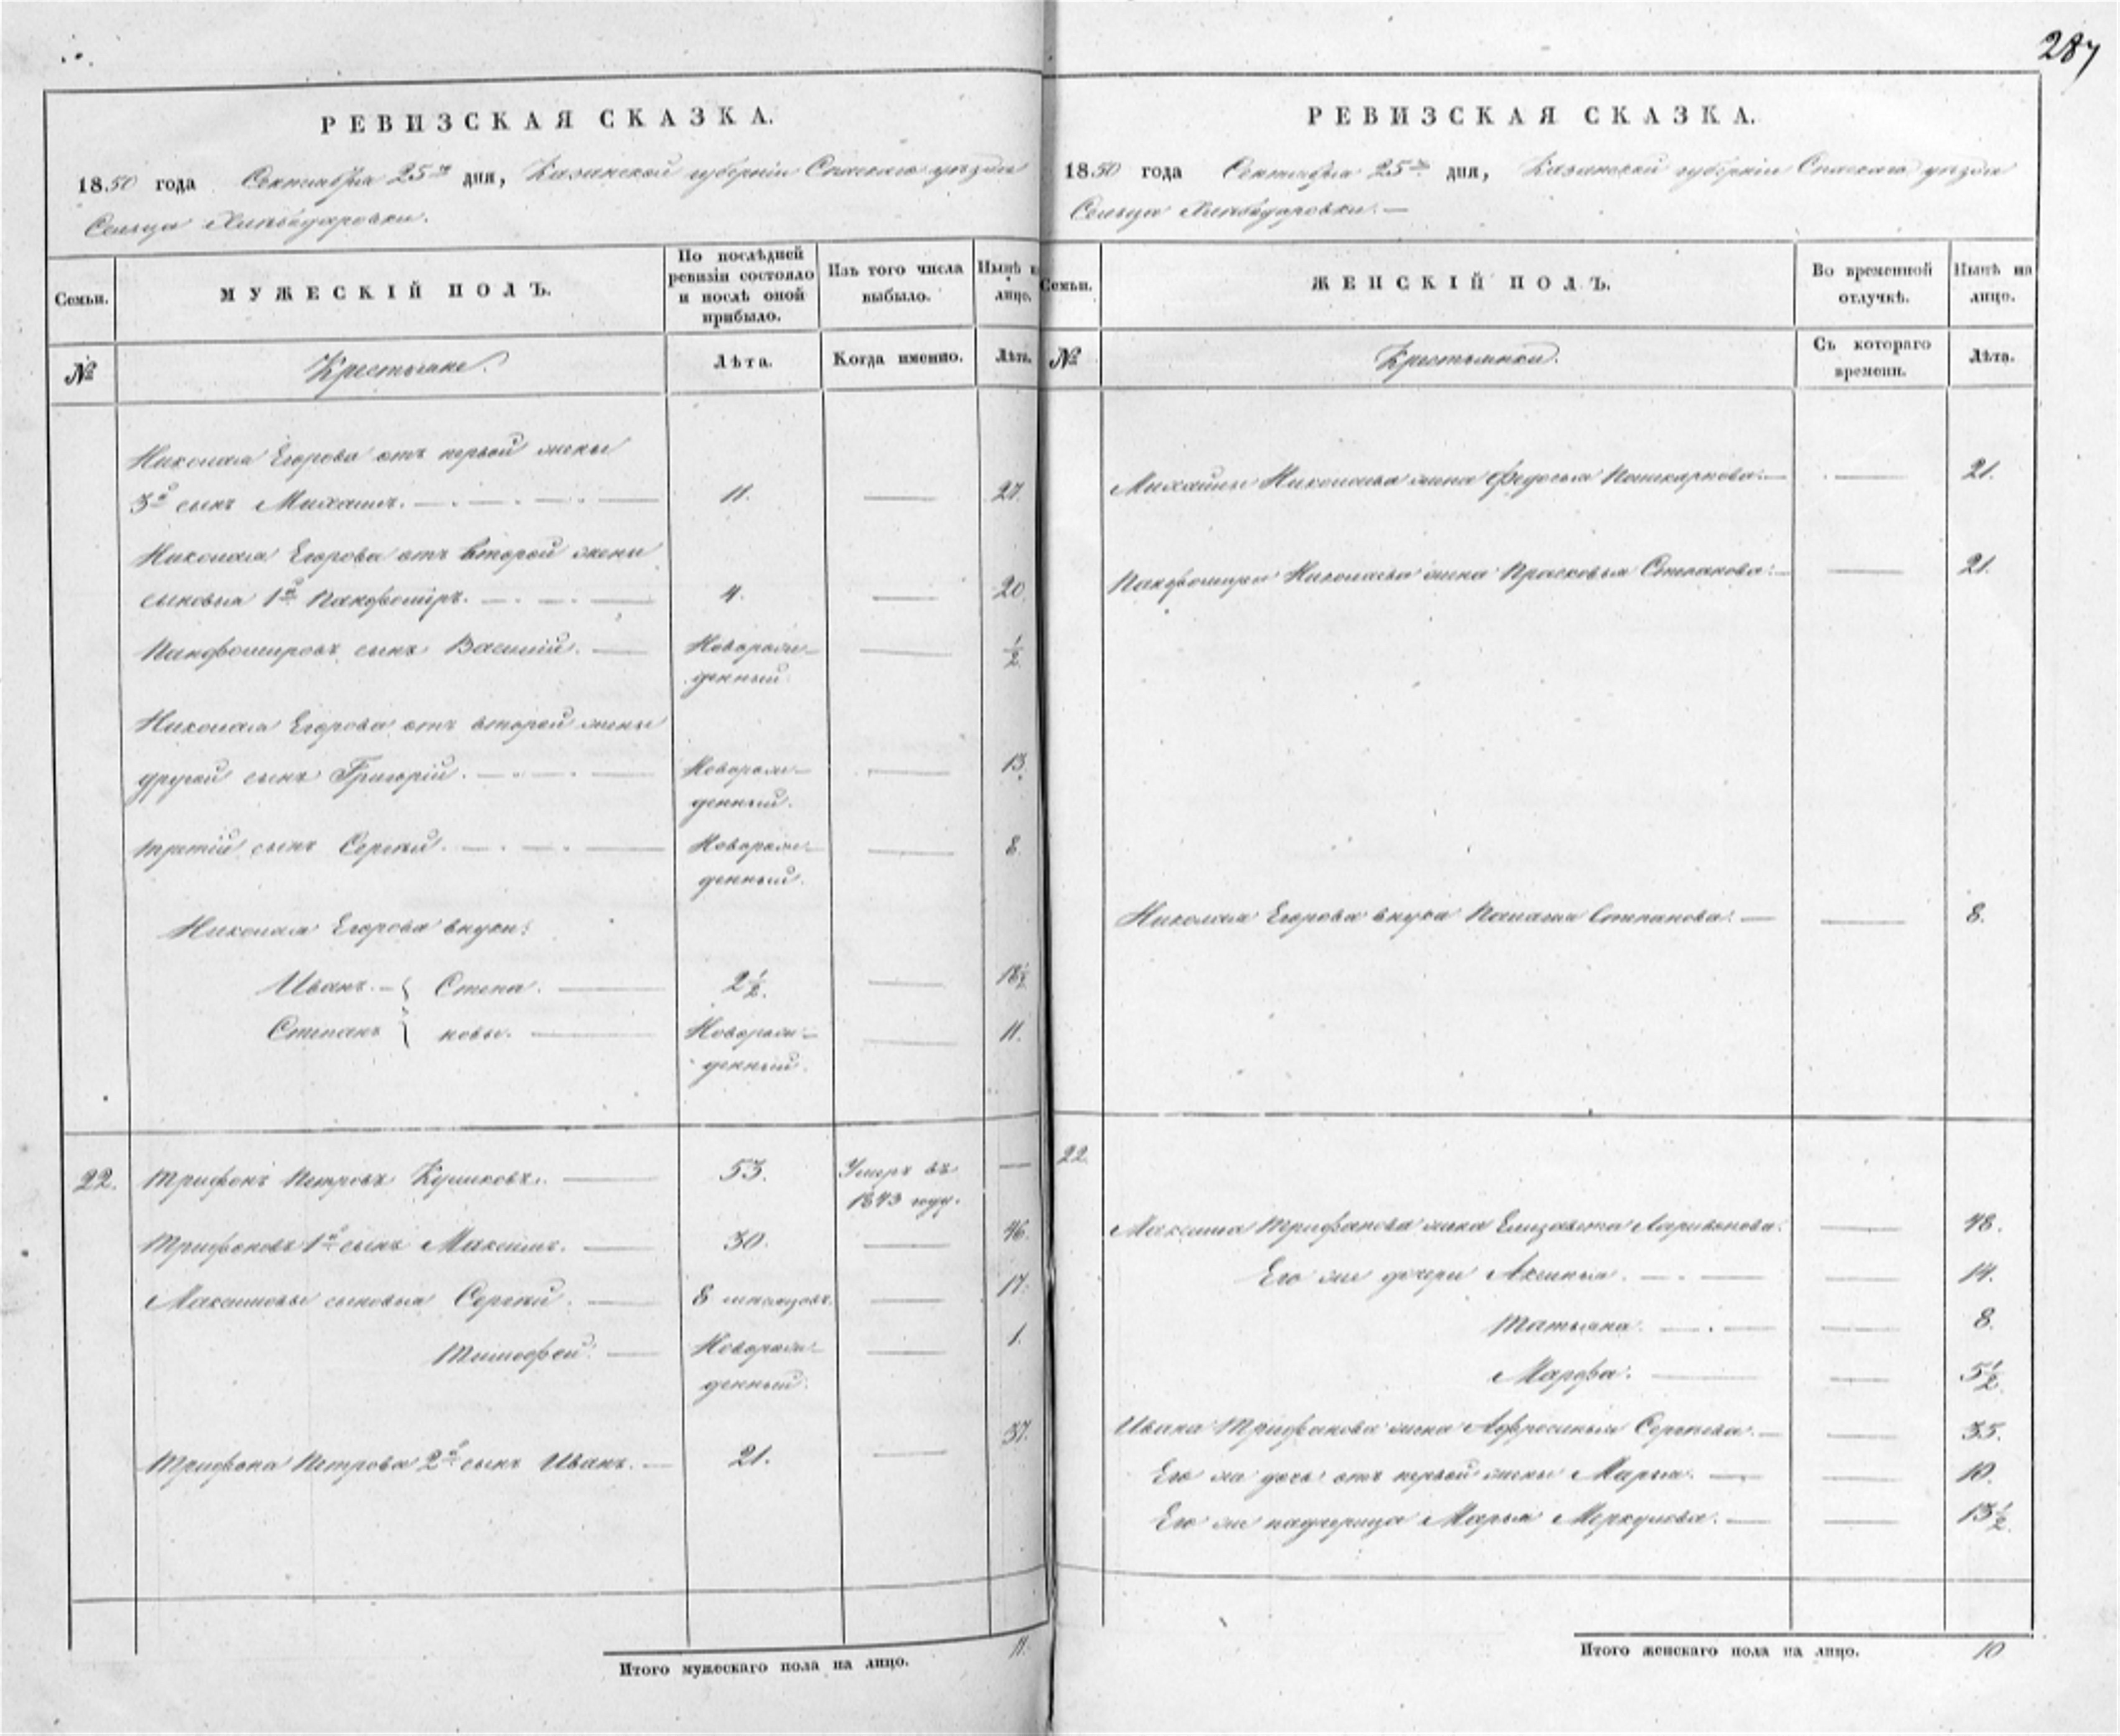 287
РЕВИЗСКАЯ СКАЗКА.
1850 года Сентября 25го дня, Казанской губернiи Спаскаго уѣзда
Сельца
МУЖЕСКIЙ ПОЛЪ.
Семьи.
По послѣдней ревизiи состояло и послѣ оной прибыло.
Изъ того числа выбыло.
Нынѣ на лицо.
№
Крестьяне.
Лѣта.
Когда именно.
Лѣта.
Николая Егорова отъ первой жены
3й сынъ Михаилъ. 11. — 27.
Николая Егорова отъ второй жены
сыновья 1й 4. — 20.
сынъ Василiй. Новорож- — ½
денный
Николая Егорова отъ второй жены
другой сынъ Григорiй. Новорож- — 13.
денный.
третiй сынъ Сергѣй. Новорож- — 8.
денный.
Николая Егорова внуки:
Иванъ. Степа. 2½. — 18½
Степанъ новы. Новорож- — 11.
денный.
22. Трифонъ Петровъ 53. Умеръ въ —
1843 году.
Трифоновъ 1й сынъ Максимъ. 30. — 46.
Максимовы сыновья Сергѣй. 8 мѣсяцовъ. — 17.
Тимофей. Новорож- — 1.
денный.
Трифона Петрова 2й сынъ Иванъ. 21. — 37.
Итого мужескаго пола на лицо. 11.
РЕВИЗСКАЯ СКАЗКА.
1850 года Сентября 25го дня, Казанской губернiи Спаскаго уѣзда
Сельца
Семьи.
ЖЕНСКIЙ ПОЛЪ.
Во временной отлучкѣ.
Нынѣ на лицо.
№
Крестьянки.
Съ котораго времени.
Лѣта.
Михайлы Николаева жена Федосья — 21.
Николаева жена Прасковья Степанова. — 21.
Николая Егорова внука Степанова. — 8.
22.
Максима Трифонова жена Елизавета — 48.
Его же дочери Аксинья. — 14.
Татьяна. — 8.
Марфа. — 5½
Ивана Трифонова жена Афросинья Сергѣева. — 35.
Его же дочь отъ первой жены Марья. — 10.
Его же падчерица Марья Меркулова. — 13½.
Итого женскаго пола на лицо. 10